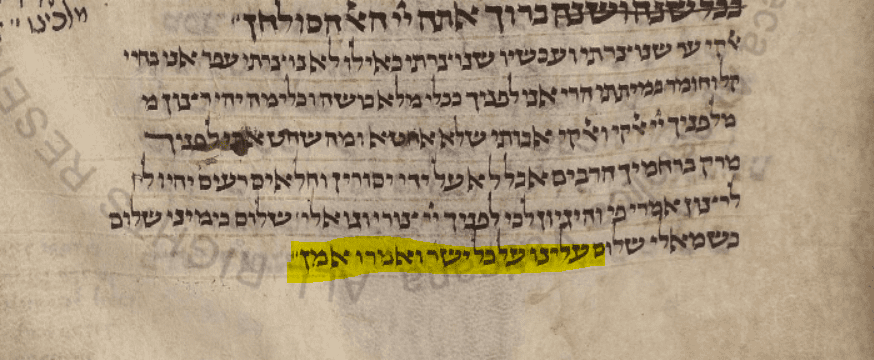 בכל שנה ושנה ברוך אתה יי הﭏ הסולחן״
ﭏקי עד שנוצרתי ועכשיו שנוצרתי כאילו לא נוצרתי עפר אני בחיי
קל וחומר במיתתי הרי אני לפניך ככלי מלא בושה וכלימה יהי רצון מ
מלפניך יי ﭏקי וﭏקי אבותי שלא אחטא ומה לפניך
מרק ברחמיך הרבים אבל לא על ידי יסורין וחלאים רעים יהיו לר
לרצון אמרי פי והגיון לבי לפניך יי צורי וגואלי שלום בימיני שלום
בשמאלי שלום עלינו על כל ישר ואמרו אמן״